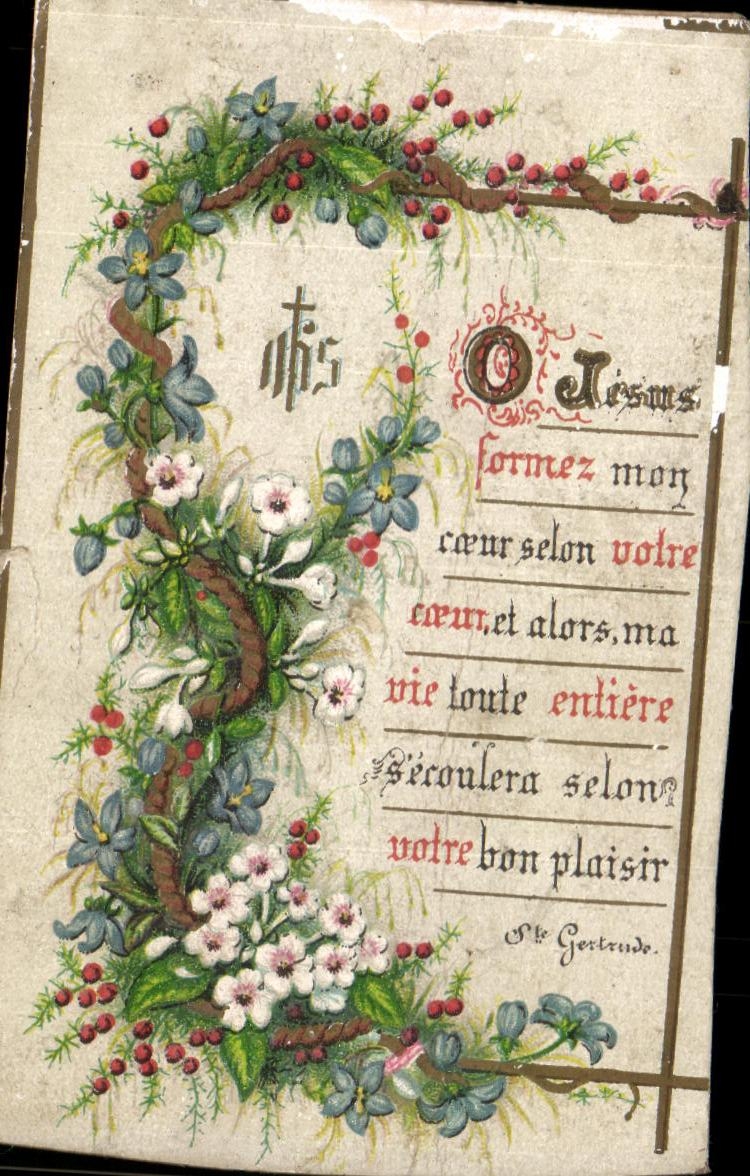 IHS
O Jésus
formez mon
cœur selon votre
cœur, et alors, ma
vie toute entière
s'écoulera selon
votre bon plaisir
Ste Gertrude.